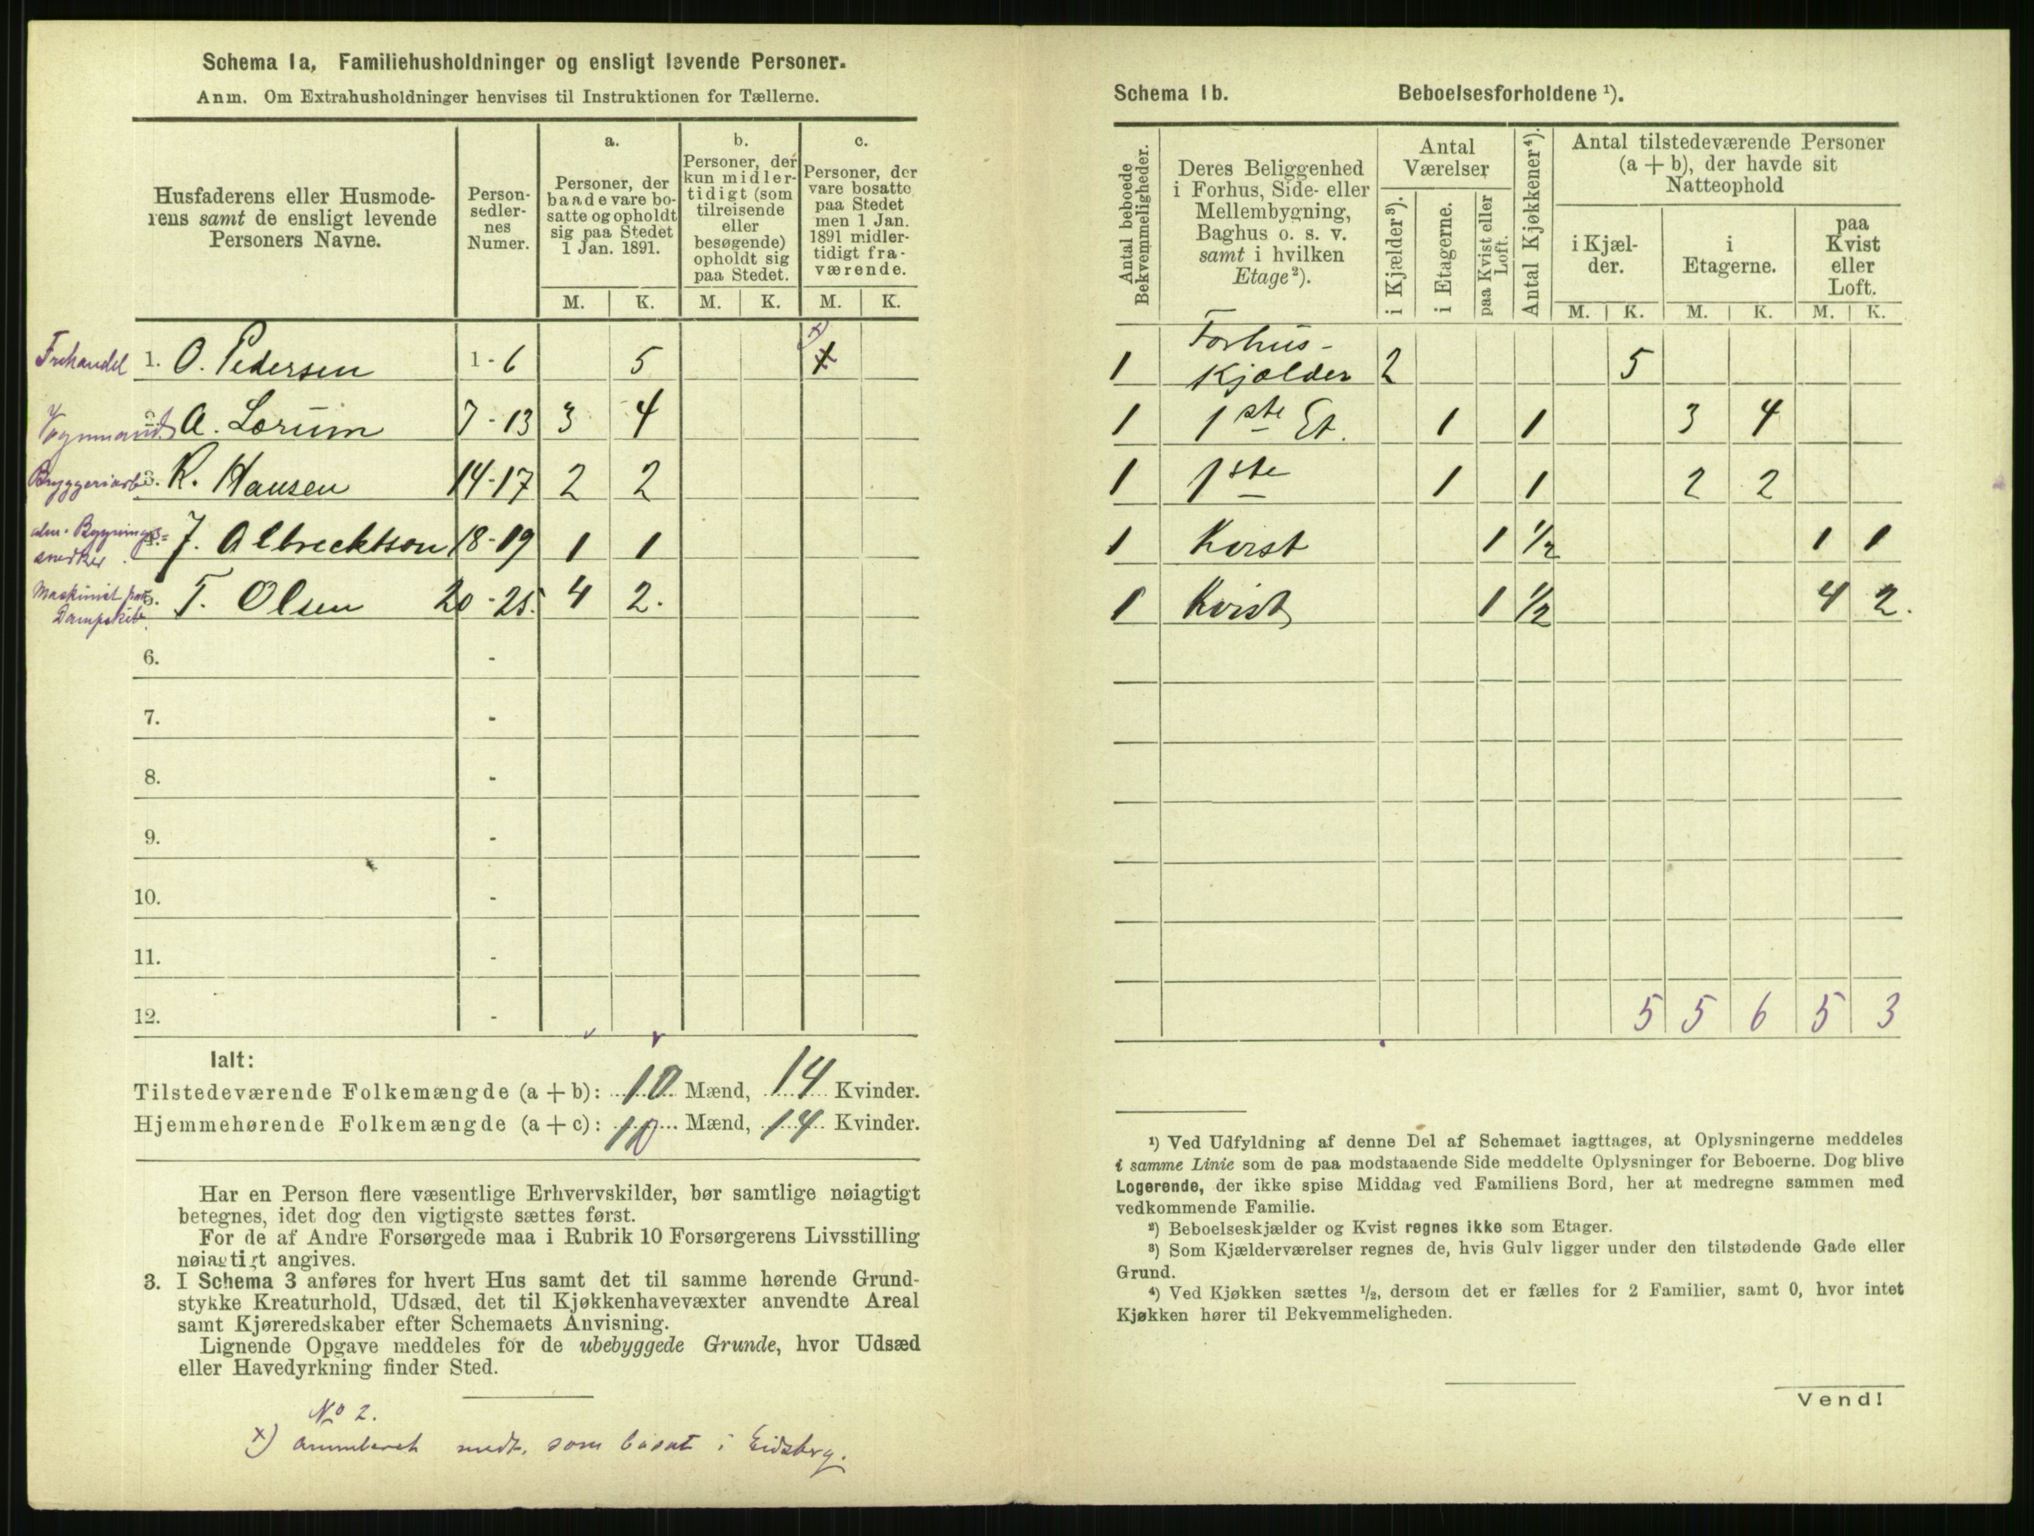 Schema 1a, Familiehusholdninger og ensligt levende Personer.
Anm. Om Extrahusholdninger henvises til Instruktionen for Tællerne.
Husfaderens eller Husmoderens samt de ensligt levende Personers Navne.
Personsedlernes Numer.
a.
Personer, der baade vare bosatte og opholdt sig paa Stedet 1 Jan. 1891.
b.
Personer, der kun midlertidigt (som tilreisende eller besøgende) opholdt sig paa Stedet.
c.
Personer, der vare bosatte paa Stedet men 1 Jan. 1891 midlertidigt fraværende.
M. K. M. K. M. K.
x)
Frehandel 1. O. Pedersen 1 - 6 5 1
Vognmand A. Lorum 7 - 13 3 4
Bryggeriarb 3. K. Hansen 14 - 17 2 2
alm. Bygnings=
snedker. J. Albrecktson 18 - 19 1 1
Maskinist paa
Dampskib. 5. T. Olsen 20 - 25. 4 2.
6. -
7. -
8. -
9. -
10. -
11. -
12. -
Ialt:
Tilstedeværende Folkemængde (a + b): 10 Mænd, 14 Kvinder.
Hjemmehørende Folkemængde (a + c): 10 Mænd, 14 Kvinder.
Har en Person flere væsentlige Erhvervskilder, bør samtlige nøiagtigt
betegnes, idet dog den vigtigste sættes først.
For de af Andre Forsørgede maa i Rubrik 10 Forsørgerens Livsstilling
nøiagtigt angives.
3. I Schema 3 anføres for hvert Hus samt det til samme hørende Grund-
stykke Kreaturhold, Udsæd, det til Kjøkkenhavevæxter anvendte Areal
samt Kjøreredskaber efter Schemaets Anvisning.
Lignende Opgave meddeles for de ubebyggede Grunde, hvor Udsæd
eller Havedyrkning finder Sted.
No 2.
x) medt, som bosat i Eidsberg.
Schema 1b. Beboelsesforholdene ¹).
Antal beboede Bekvemmeligheder.
Deres Beliggenhed i Forhus, Side- eller Mellembygning, Baghus o. s. v. samt i hvilken Etage²).
Antal Værelser
i Kjælder³).
i Etagerne.
paa Kvist eller Loft.
Antal Kjøkkener⁴).
Antal tilstedeværende Personer (a + b), der havde sit Natteophold
i Kjælder.
i Etagerne.
paa Kvist eller Loft.
M. K. M. K. M. K.
1 Forhus-
Kjælder 2 5
1 1ste Et. 1 1 3 4
1 1ste 1 1 2 2
1 Kvist 1 ½ 1 1
1 Kvist 1 ½ 4 2.
5 5 6 5 3
¹) Ved Udfyldning af denne Del af Schemaet iagttages, at Oplysningerne meddeles
i samme Linie som de paa modstaaende Side meddelte Oplysninger for Beboerne. Dog blive
Logerende, der ikke spise Middag ved Familiens Bord, her at medregne sammen med
vedkommende Familie.
²) Beboelseskjælder og Kvist regnes ikke som Etager.
³) Som Kjælderværelser regnes de, hvis Gulv ligger under den tilstødende Gade eller
Grund.
⁴) Ved Kjøkken sættes ½, dersom det er fælles for 2 Familier, samt 0, hvor intet
Kjøkken hører til Bekvemmeligheden.
Vend!